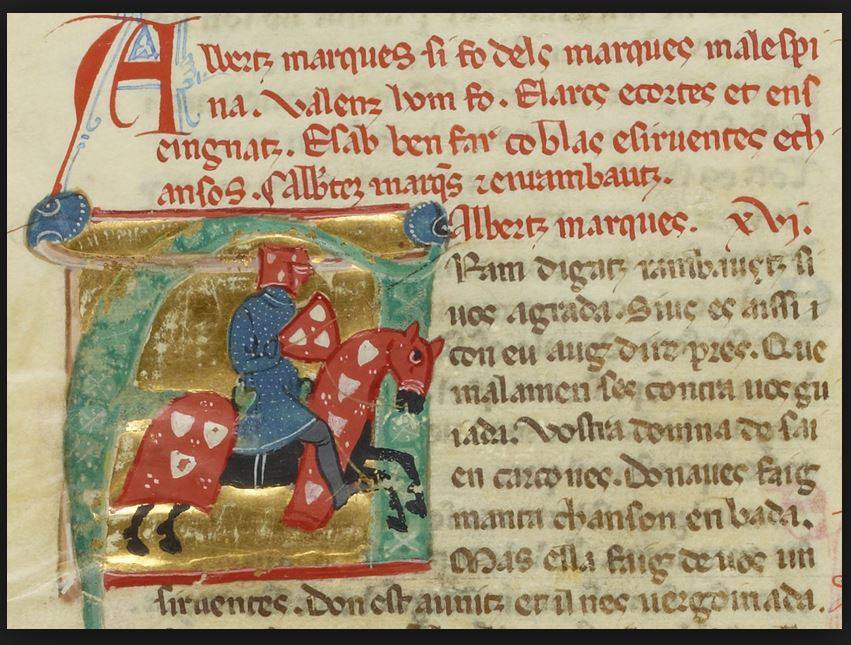 Albertz marques si fo dels marques malespi
na. Valenz hom fo. Elarcs ecortes et ens
eingnatz. Esab ben far coblas esiruentes ech
ansos. Calb'tez marq's 7 enrambautz.
Albertz marques. xvj.
Ram digatz rambautz si
uos agrada. Siuς es aissi
con eu aug dire pres. Que
malamen ses contra uos gu
iada. Vostra domna de sai
en carcones. Donaues faig
manta chanson en bada.
Mas ella faig de uos un
siruentes. Don est aunitz et il nes uergoinada.